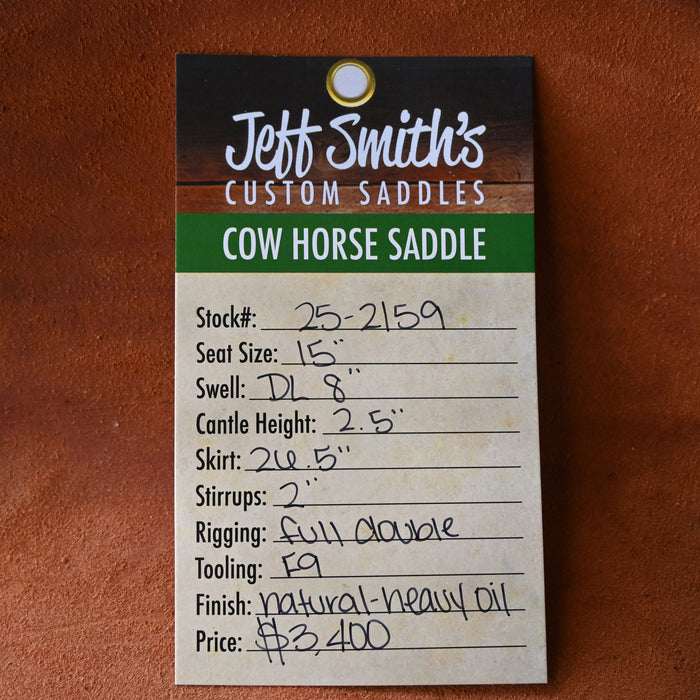 Jeff Smith's
CUSTOM SADDLES
COW HORSE SADDLE
Stock#: 25-2159
Seat Size: 15"
Swell: DL 8"
Cantle Height: 2.5"
Skirt: 26.5"
Stirrups: 2"
Rigging: full double
Tooling: F9
Finish: natural-heavy oil
Price: $3,400